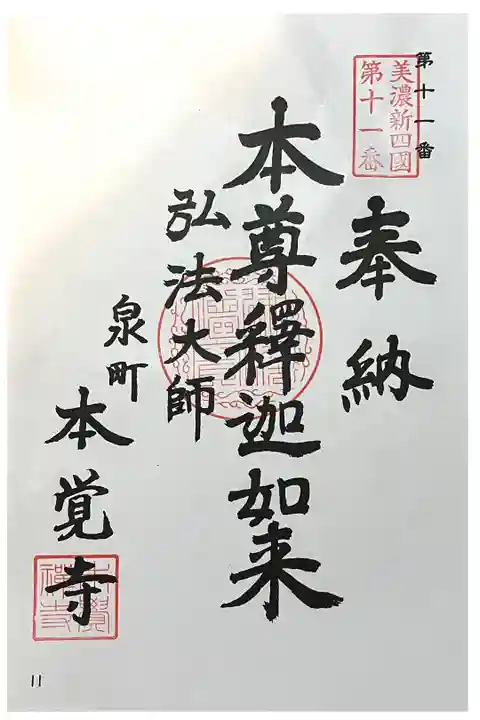 第十一番
美濃新四國
第十一番
奉納
本尊釋迦如来
弘法大師
泉町
本覚寺
11